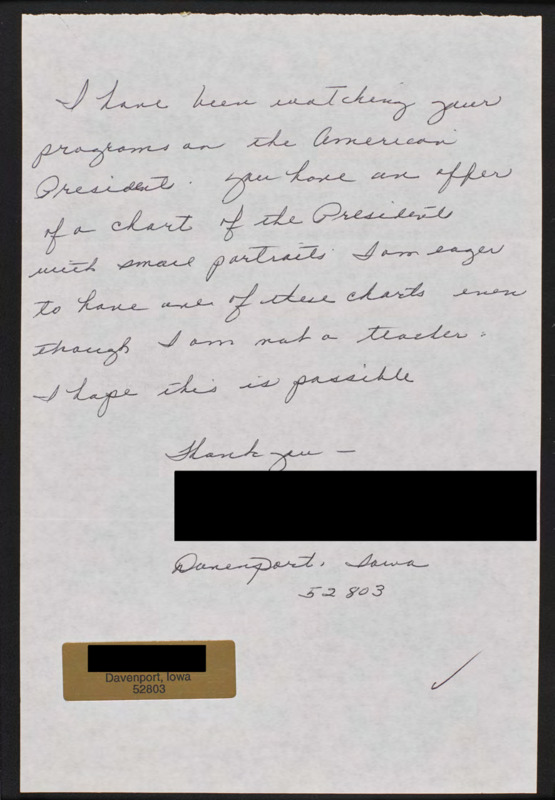 I have been watching your
programs on the American
Presidents. You have an offer
of a chart of the Presidents
with small portraits. I am eager
to have one of these charts even
though I am not a teacher.
I hope this is possible
Thank you —
Davenport, Iowa
52803
Davenport, Iowa
52803